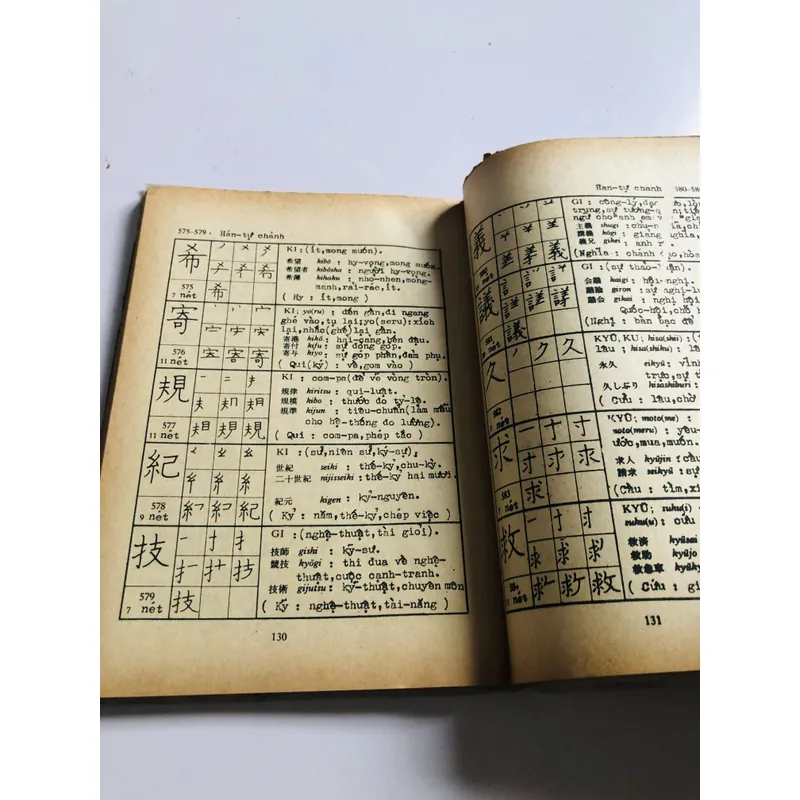 575-579 · Hán-tự chánh
希
575
7 nét
KI:(ít,mong muốn).
希望 kibō : hy-vọng,mong muốn.
希望者 kibōsha : người hy-vọng.
希薄 kihaku : nhỏ-nhen,mong-
manh,rải-rác,ít.
( Hy : ít,mong )
寄
576
11 nét
KI, yo(ru) : đến gần,đi ngang
ghé vào,tụ lại;yo(seru):xích
lại,nhào(ghé)lại gần.
寄港 kikō : hải-cảng,bến đậu.
寄付 kifu : sự đóng góp.
寄与 kiyo : sự góp phần,đảm phụ.
( Quí(ký) : về,gom vào )
規
577
11 nét
KI : com-pa(để vẽ vòng tròn).
規律 kiritsu : qui-luật.
規模 kibo : thước đo tỷ-lệ.
規準 kijun : tiêu-chuẩn(làm mẫu
cho hệ-thống đo lường).
( Qui : com-pa,phép tắc )
紀
578
9 nét
KI :(sử,niên sử,ký-sự).
世紀 seiki : thế-kỷ,chu-kỳ.
二十世紀 nijisseiki : thế-kỷ hai mươi.
紀元 kigen : kỷ-nguyên.
( Kỷ : năm,thế-kỷ,chép việc )
技
579
7 nét
GI :(nghệ-thuật,tài giỏi).
技師 gishi : kỹ-sư.
競技 kyōgi : thi đua về nghệ-
thuật,cuộc cạnh-tranh.
技術 gijutsu : kỹ-thuật,chuyên môn
( Kỹ : nghệ-thuật,tài-năng )
130
Hán-tự chánh 580-58
義
GI : công-lý,đạo
trung,sự tương-q
ngư cho anh em v
主義 shugi : chủ-n
講義 kōgi : giảng
義兄 gikei : anh r
(Nghĩa : chánh
議
GI :(sự thảo-luận).
会議 kaigi : hội-nghị.
議論 giron : sự nghị-lu
議会 gikai : nghị hội
Quốc-hội,chỗ h
(Nghị : bàn bạc để
久
582
3 nét
KYŪ, KU; hisa(shii) :(
lâu ; hisa(shiku) : lâu
永久 eikyū : vĩnh
trực,sự t
久しぶり hisashiburi
(Cửu : lâu,chờ
求
583
7 nét
KYŪ; moto(me) :
moto(meru) : yêu-
ước,mua,muốn.
求人 kyūjin : cầu
請求 seikyū : sự
(Cầu : tìm,xi
救
584
11 nét
KYŪ; suku(i)
suku(u) : cứu
救済 kyūsai
救助 kyūjo
救急車 kyūky
(Cứu : gi
131